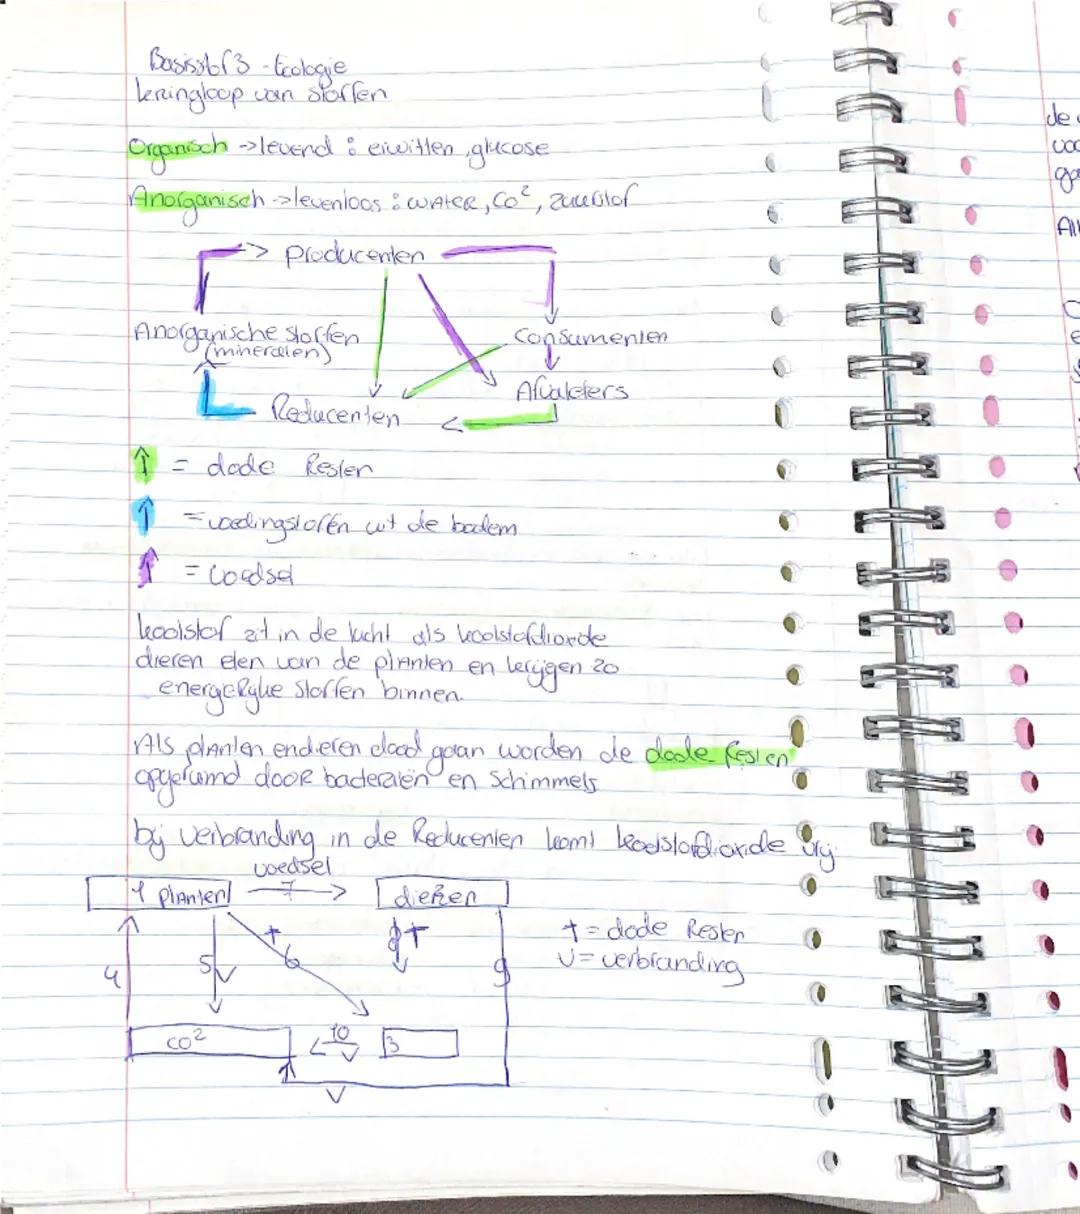 Basisstof 3 - Ecologie
kringloop van stoffen
Organisch -> levend : eiwitten, glucose
Anorganisch -> levenloos : WATER, CO², zuurstof
Producenten
Anorganische stoffen
(mineralen)
Consumenten
Afvaleters
Reducenten
= dode Resten
= voedingstoffen uit de bodem
= Voedsel
koolstof zit in de lucht als koolstofdioxide
dieren eten van de planten en krijgen zo
energerijke stoffen binnen.
Als planten en dieren dood gaan worden de dode Resten
opgeruimd door bacteriën en Schimmels
bij verbranding in de Reducenten komt koolstofdioxide vrij
voedsel
1 planten
7
dieren
+
8 +
+ = dode Resten
V = verbranding
4
5 V
6
9
CO²
10
V
3
V
de
voo
ga
All